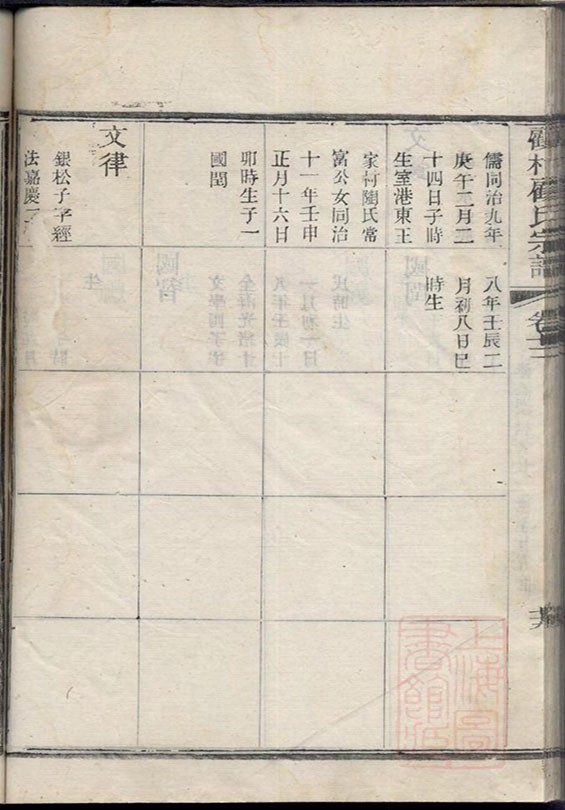 儒同治九年
庚午二月二
十四日子時
生室港東王
家柯陶氏常
富公女同治
十一年壬申
正月十六日
卯時生子一
國閏
文律
銀松子字經
法嘉慶二
八年壬辰二
月初八日巳
時生
氏宗譜
卷十二
上海圖
書館藏